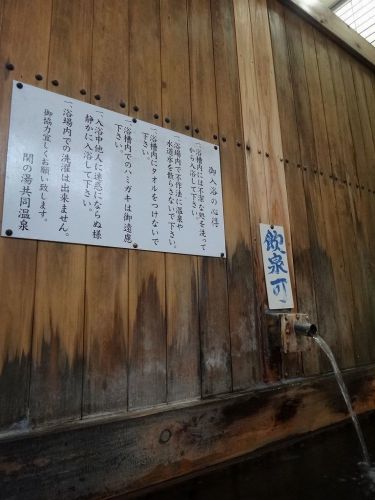 御入浴の心得
一、浴槽内には不潔な処を洗って
から入浴して下さい。
一、浴場内で不作法に温泉や
水道水を散らさないで下さい。
一、浴槽内にタオルをつけないで
下さい。
一、浴槽内でのハミガキは御遠慮
下さい。
一、入浴中他人に迷惑にならぬ様
静かに入浴して下さい。
一、浴場内での洗濯は出来ません。
御協力宜しくお願い致します。
関の湯共同温泉
飲泉可